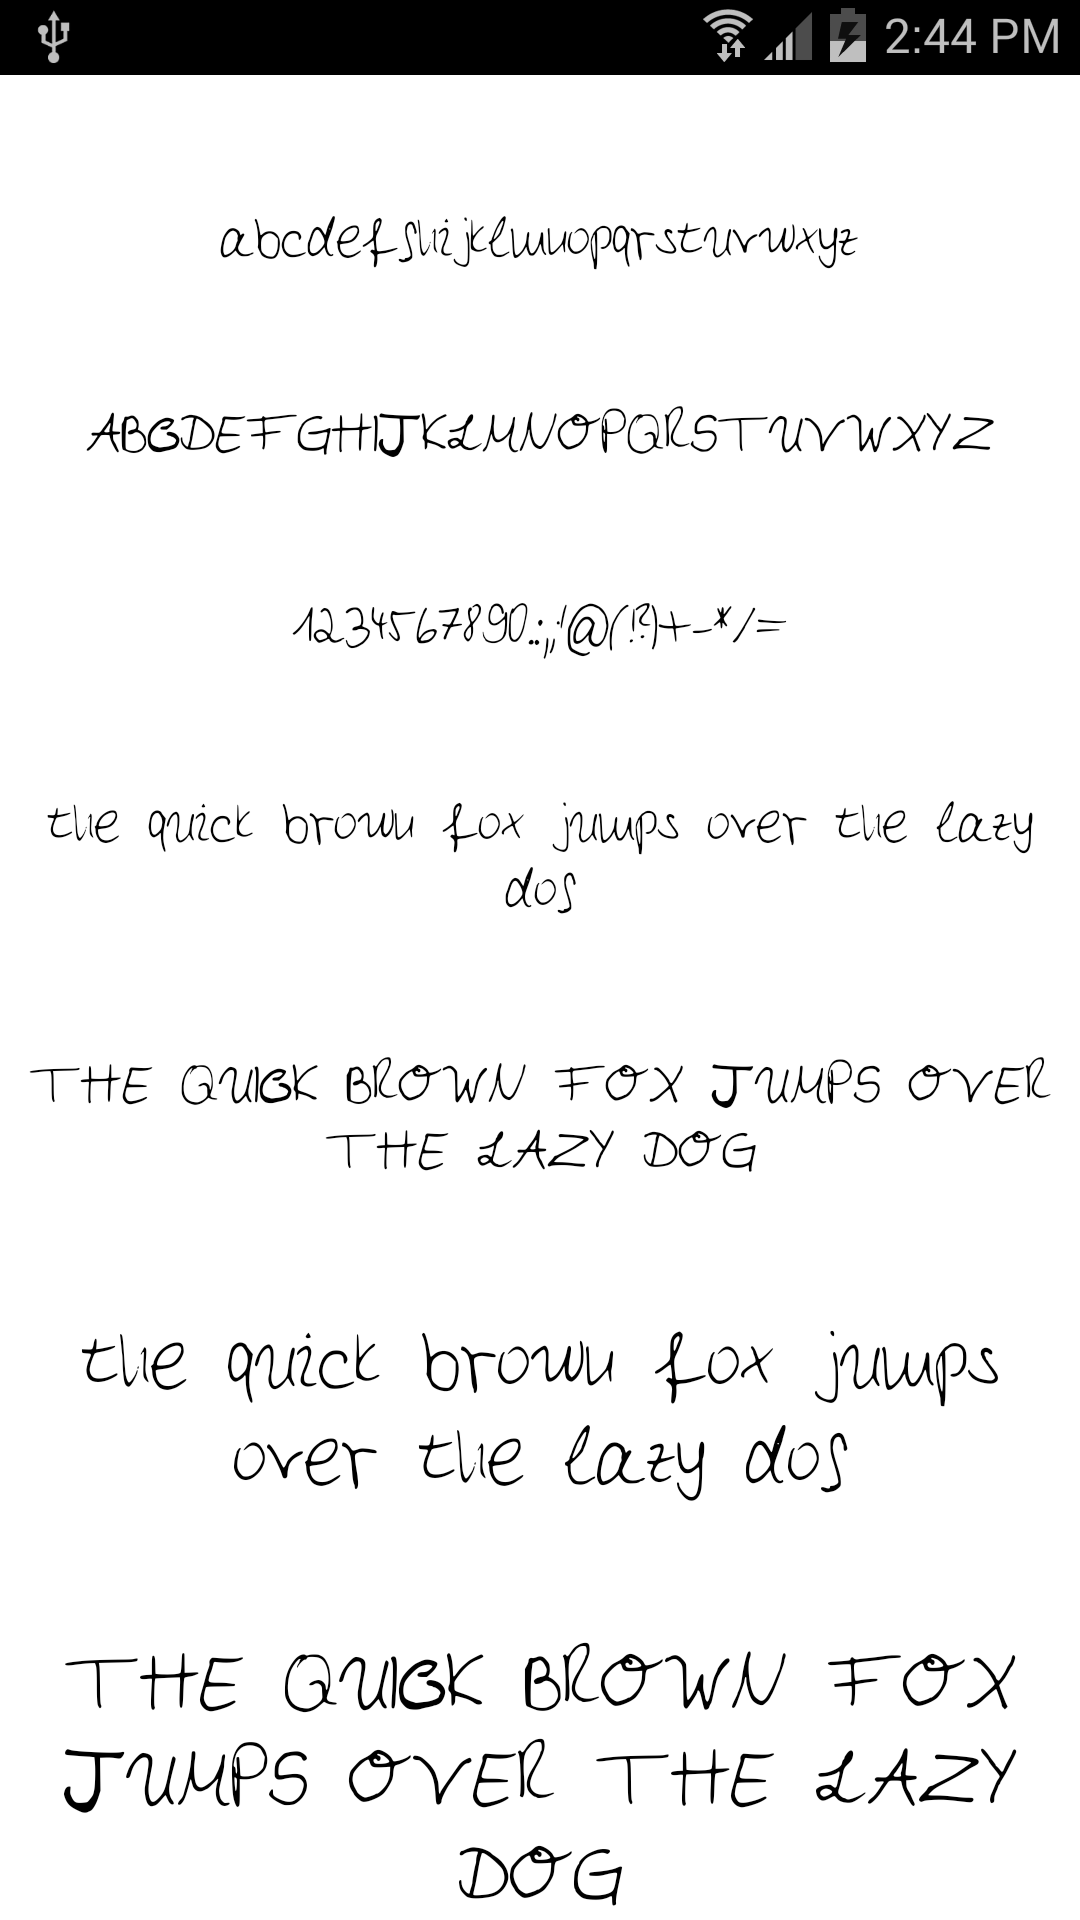 2:44 PM
abcdefghijklmnopqrstuvwxyz
ABCDEFGHIJKLMNOPQRSTUVWXYZ
1234567890.:,;'!@(!?)+-*/=
the quick brown fox jumps over the lazy
dog
THE QUICK BROWN FOX JUMPS OVER
THE LAZY DOG
the quick brown fox jumps
over the lazy dog
THE QUICK BROWN FOX
JUMPS OVER THE LAZY
DOG